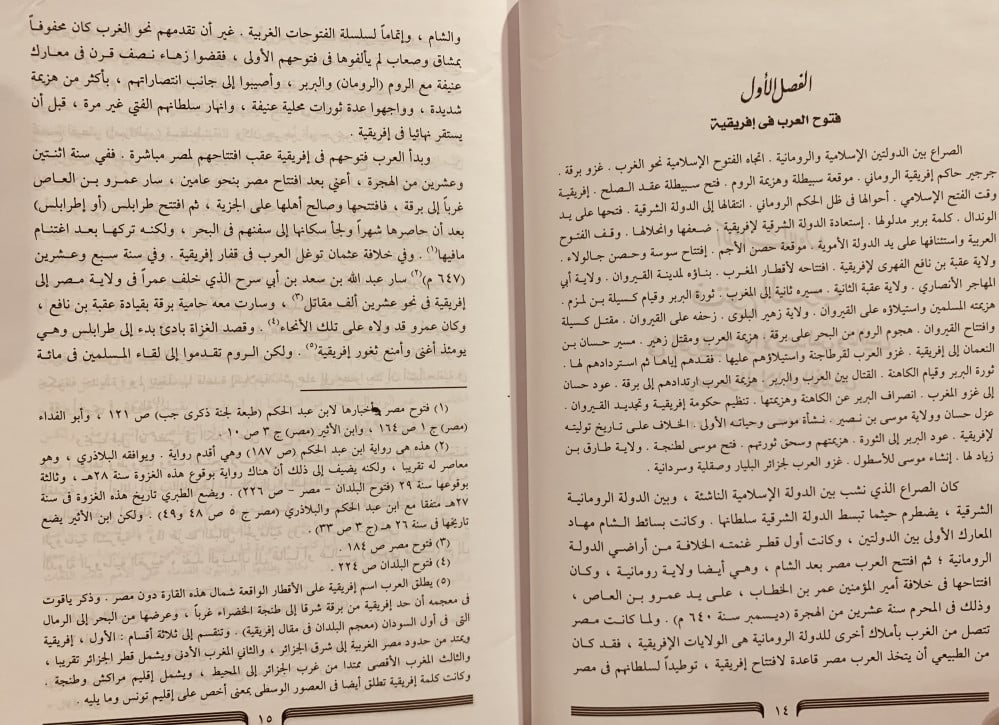 الفصل الأول
فتوح العرب فى إفريقية
الصراع بين الدولتين الإسلامية والرومانية . اتجاه الفتوح الإسلامية نحو الغرب . غزو برقة .
جرجير حاكم إفريقية الروماني . موقعة سبيطلة وهزيمة الروم . فتح سبيطلة عقد الصلح . إفريقية
وقت الفتح الإسلامي . أحوالها فى ظل الحكم الروماني . انتقالها إلى الدولة الشرقية . فتحها على يد
الوندال . كلمة بربر مدلولها . إستعادة الدولة الشرقية لإفريقية . ضعفها وانحلالها . وقف الفتوح
العربية واستئنافها على يد الدولة الأموية . موقعة حصن الأجم . إفتتاح سوسة وحصن جالولاء .
ولاية عقبة بن نافع الفهرى لإفريقية . افتتاحه لأقطار المغرب . بناؤه لمدينة القيروان . ولاية أبي
المهاجر الأنصاري . ولاية عقبة الثانية . مسيره ثانية إلى المغرب . ثورة البربر وقيام كسيلة بن لمزم .
هزيمته المسلمين واستيلاؤه على القيروان . ولاية زهير البلوى . زحفه على القيروان . مقتل كسيلة
وافتتاح القيروان . هجوم الروم من البحر على برقة ، هزيمة العرب ومقتل زهير . مسير حسان بن
النعمان إلى إفريقية . غزو العرب لقرطاجنة واستيلاؤهم عليها . فقدهم إياها ثم استردادهم لها .
ثورة البربر وقيام الكاهنة . القتال بين العرب والبربر . هزيمة العرب ارتدادهم إلى برقة . عود حسان
إلى غزو المغرب . انصراف البربر عن الكاهنة وهزيمتها . تنظيم حكومة إفريقية وتجديد القيروان .
عزل حسان وولاية موسى بن نصير . نشأة موسى وحياته الأولى . الخلاف على تاريخ توليته
لإفريقية . عود البربر إلى الثورة . هزيمتهم وسحق ثورتهم . فتح موسى لطنجة . ولاية طارق بن
زياد لها . إنشاء موسى للأسطول . غزو العرب لجزائر البليار وصقلية وسردانية .
كان الصراع الذي نشب بين الدولة الإسلامية الناشئة ، وبين الدولة الرومانية
الشرقية ، يضطرم حيثما تبسط الدولة الشرقية سلطانها . وكانت بسائط الشام مهاد
المعارك الأولى بين الدولتين ، وكانت أول قطر غنمته الخلافة من أراضي الدولة
الرومانية ؛ ثم افتتح العرب مصر بعد الشام ، وهي أيضا ولاية رومانية ، وكان
افتتاحها في خلافة أمير المؤمنين عمر بن الخطاب ، على يد عمرو بن العاص ،
وذلك في المحرم سنة عشرين من الهجرة (ديسمبر سنة ٦٤٠ م) . ولما كانت مصر
تتصل من الغرب بأملاك أخرى للدولة الرومانية هى الولايات الإفريقية ، فقد كان
من الطبيعي أن يتخذ العرب مصر قاعدة لافتتاح إفريقية ، توطيداً لسلطانهم فى مصر
١٤
والشام ، وإتماماً لسلسلة الفتوحات الغربية . غير أن تقدمهم نحو الغرب كان محفوفاً
بمشاق وصعاب لم يألفوها فى فتوحهم الأولى ، فقضوا زهاء نصف قرن فى معارك
عنيفة مع الروم (الرومان) والبربر ، وأصيبوا إلى جانب انتصاراتهم ، بأكثر من هزيمة
شديدة ، وواجهوا عدة ثورات محلية عنيفة ، وانهار سلطانهم الفتي غير مرة ، قبل أن
يستقر نهائيا فى إفريقية .
وبدأ العرب فتوحهم فى إفريقية عقب افتتاحهم لمصر مباشرة . ففي سنة اثنتين
وعشرين من الهجرة ، أعني بعد افتتاح مصر بنحو عامين ، سار عمرو بن العاص
غرباً إلى برقة ، فافتتحها وصالح أهلها على الجزية ، ثم افتتح طرابلس (أو إطرابلس)
بعد أن حاصرها شهراً ولجأ سكانها إلى سفنهم فى البحر ، ولكنه تركها بعد اغتنام
مافيها(١) . وفي خلافة عثمان توغل العرب فى قفار إفريقية . وفي سنة سبع وعشرين
(٦٤٧ م)(٢) سار عبد الله بن سعد بن أبي سرح الذي خلف عمراً في ولاية مصر إلى
إفريقية في نحو عشرين ألف مقاتل(٣) ، وسارت معه حامية برقة بقيادة عقبة بن نافع ،
وكان عمرو قد ولاه على تلك الأنحاء(٤) . وقصد الغزاة بادئ بدء إلى طرابلس وهي
يومئذ أغنى وأمنع ثغور إفريقية(٥) . ولكن الروم تقدموا إلى لقاء المسلمين فى مائة
(١) فتوح مصر وأخبارها لابن عبد الحكم (طبعة لجنة ذكرى جب) ص ١٢١ ، وأبو الفداء
(مصر) ج ١ ص ١٦٤ ، وابن الأثير (مصر) ج ٣ ص ١٠ .
(٢) هذه هى رواية ابن عبد الحكم (ص ١٨٧) وهي أقدم رواية . ويوافقه البلاذري ، وهو
معاصر له تقريبا ، ولكنه يضيف إلى ذلك أن هناك رواية بوقوع هذه الغزوة سنة ٢٨هـ ، وثالثة
بوقوعها سنة ٢٩ (فتوح البلدان – مصر – ص ٢٢٦) . ويضع الطبري تاريخ هذه الغزوة فى سنة
٢٧هـ متفقا مع ابن عبد الحكم والبلاذري (مصر ج ٥ ص ٤٨ و٤٩) . ولكن ابن الأثير يضع
تاريخها في سنة ٢٦ هـ (ج ٣ ص ٣٣) .
(٣) فتوح مصر ص ١٨٤ .
(٤) فتوح البلدان ص ٢٢٤ .
(٥) يطلق العرب اسم إفريقية على الأقطار الواقعة شمال هذه القارة دون مصر . وذكر ياقوت
فى معجمه أن حد إفريقية من برقة شرقا إلى طنجة الخضراء غرباً ، وعرضها من البحر إلى الرمال
التى فى أول السودان (معجم البلدان فى مقال إفريقية) . وتنقسم إلى ثلاثة أقسام : الأول ، إفريقية
ويمتد من حدود مصر الغربية إلى شرق الجزائر ، والثاني المغرب الأدنى ويشمل قطر الجزائر تقريبا ،
والثالث المغرب الأقصى ممتدا من غرب الجزائر إلى المحيط ، ويشمل إقليم مراكش وطنجة .
وكانت كلمة إفريقية تطلق أيضا فى العصور الوسطى بمعنى أخص على إقليم تونس وما يليه .
١٥